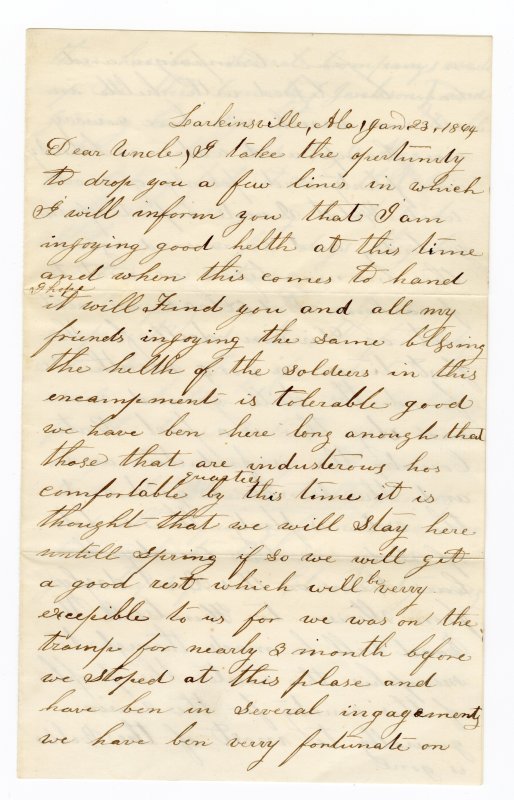 Larkinsville, Ala, Jan 23, 1864
Dear Uncle, I take the opertunity
to drop you a few lines in which
I will inform you that I am
injoying good helth at this time
and when this comes to hand
I hope
it will Find you and all my
friends injoying the same blssing
the helth of the soldeers in this
encampment is tolerable good
we have ben here long anough that
those that are industerows has
quarties
comfortable by this time it is
thought that we will stay here
untill spring if so we will get
a good rest which will be verry
excepible to us for we was on the
tramp for nearly 3 month before
we stoped at this plase and
have ben in several ingagements
we have ben verry fortunate on